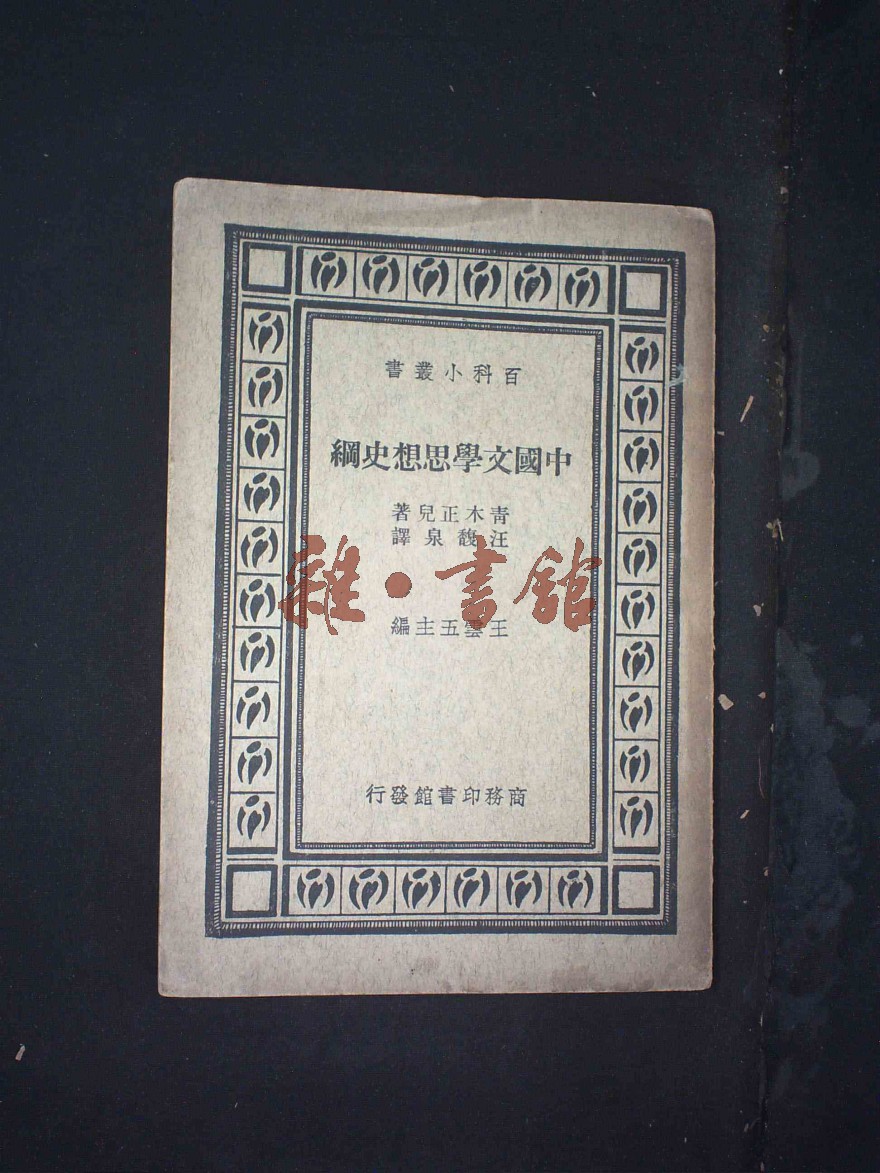 百科小叢書
中國文學思想史綱
青木正兒著
汪馥泉譯
雜·書館
王雲五主編
商務印書館發行